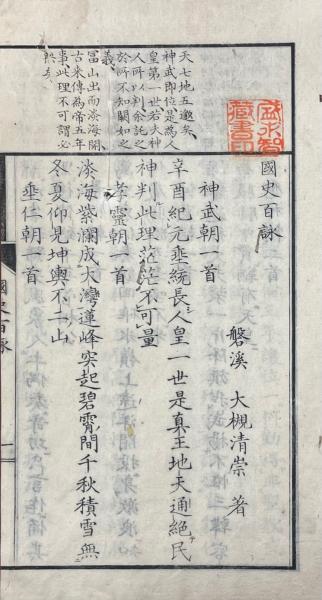 國史百詠
磐溪 大槻清崇 著
神武朝一首
辛酉紀元垂統長人皇一世是真王地天通絶民
神判此理茫茫不可量
孝靈朝一首
淡海紫瀾成大灣蓮峰突起碧霄間千秋積雪無
冬夏仰見坤輿不二山
垂仁朝一首
天七地五邈矣
神武即位是為人
皇第一世若夫神
人所以判余託之
於所不知闕如之
義
冨山出而淡海開
古来傳為帝五年
事此理不可謂必
國史百詠
一